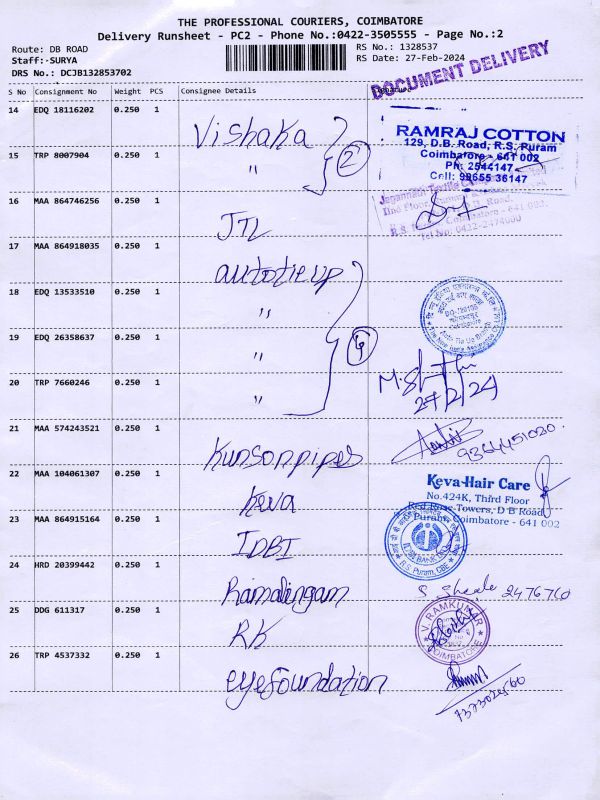 THE PROFESSIONAL COURIERS, COIMBATORE
Delivery Runsheet - PC2 - Phone No.:0422-3505555 - Page No.:2
Route: DB ROAD
RS No.: 1328537
Staff:-SURYA
RS Date: 27-Feb-2024
DRS No.: DCJB132853702
DOCUMENT DELIVERY
S No Consignment No Weight PCS Consignee Details Signature
14 EDQ 18116202 0.250 1
Vishaka
2
RAMRAJ COTTON
129, D.B. Road, R.S. Puram
Coimbatore - 641 002
Ph: 2544147
Cell: 99655 36147
15 TRP 8007904 0.250 1
"
16 MAA 864746256 0.250 1
JTL
Jagannath Textile
Coimbatore - 641 002.
Tel No: 0422-2474000
17 MAA 864918035 0.250 1
autotieup
18 EDQ 13533510 0.250 1
"
19 EDQ 26358637 0.250 1
"
4
20 TRP 7660246 0.250 1
"
27/2/24
21 MAA 574243521 0.250 1
Kunsonpipes
9364451020.
22 MAA 104061307 0.250 1
Keva
Keva Hair Care
No.424K, Third Floor
Red Rose Towers, D B Road
Puram, Coimbatore - 641 002
23 MAA 864915164 0.250 1
IDBI
IDBI BANK
R.S. Puram, CBE
24 HRD 20399442 0.250 1
Ramalingam
2476760
25 DDG 611317 0.250 1
RK
V. RAMKUMAR
COIMBATORE
26 TRP 4537332 0.250 1
eyefoundation